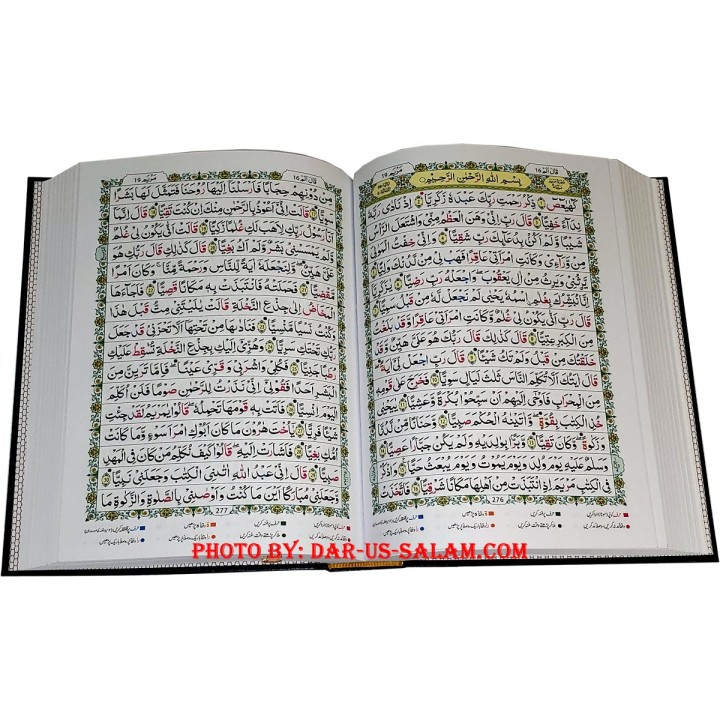 قَالَ اَلَمْ ١٦ مَرْيَم ١٩
بِسْمِ اللّٰهِ الرَّحْمٰنِ الرَّحِيْمِ
كٓهٰيٰعٓصٓ ۝١ ذِكْرُ رَحْمَتِ رَبِّكَ عَبْدَهٗ زَكَرِيَّا ۝٢ اِذْ نَادٰى رَبَّهٗ
نِدَآءً خَفِيًّا ۝٣ قَالَ رَبِّ اِنِّيْ وَهَنَ الْعَظْمُ مِنِّيْ وَاشْتَعَلَ الرَّاْسُ
شَيْبًا وَّلَمْ اَكُنْۢ بِدُعَآئِكَ رَبِّ شَقِيًّا ۝٤ وَاِنِّيْ خِفْتُ الْمَوَالِيَ
مِنْ وَّرَآءِيْ وَكَانَتِ امْرَاَتِيْ عَاقِرًا فَهَبْ لِيْ مِنْ لَّدُنْكَ وَلِيًّا ۝٥
يَّرِثُنِيْ وَيَرِثُ مِنْ اٰلِ يَعْقُوْبَ وَاجْعَلْهُ رَبِّ رَضِيًّا ۝٦ يٰزَكَرِيَّآ
اِنَّا نُبَشِّرُكَ بِغُلٰمِ ِۨاسْمُهٗ يَحْيٰى لَمْ نَجْعَلْ لَّهٗ مِنْ قَبْلُ سَمِيًّا ۝٧
قَالَ رَبِّ اَنّٰى يَكُوْنُ لِيْ غُلٰمٌ وَّكَانَتِ امْرَاَتِيْ عَاقِرًا وَّقَدْ بَلَغْتُ
مِنَ الْكِبَرِ عِتِيًّا ۝٨ قَالَ كَذٰلِكَ قَالَ رَبُّكَ هُوَ عَلَيَّ هَيِّنٌ وَّقَدْ
خَلَقْتُكَ مِنْ قَبْلُ وَلَمْ تَكُ شَيْـًٔا ۝٩ قَالَ رَبِّ اجْعَلْ لِّيْٓ اٰيَةً
قَالَ اٰيَتُكَ اَلَّا تُكَلِّمَ النَّاسَ ثَلٰثَ لَيَالٍ سَوِيًّا ۝١٠ فَخَرَجَ عَلٰى قَوْمِهٖ
مِنَ الْمِحْرَابِ فَاَوْحٰٓى اِلَيْهِمْ اَنْ سَبِّحُوْا بُكْرَةً وَّعَشِيًّا ۝١١ يٰيَحْيٰى
خُذِ الْكِتٰبَ بِقُوَّةٍ وَاٰتَيْنٰهُ الْحُكْمَ صَبِيًّا ۝١٢ وَّحَنَانًا مِّنْ لَّدُنَّا
وَزَكٰوةً وَكَانَ تَقِيًّا ۝١٣ وَّبَرًّۢا بِوَالِدَيْهِ وَلَمْ يَكُنْ جَبَّارًا عَصِيًّا ۝١٤
وَسَلٰمٌ عَلَيْهِ يَوْمَ وُلِدَ وَيَوْمَ يَمُوْتُ وَيَوْمَ يُبْعَثُ حَيًّا ۝١٥ وَاذْكُرْ
فِي الْكِتٰبِ مَرْيَمَ اِذِ انْتَبَذَتْ مِنْ اَهْلِهَا مَكَانًا شَرْقِيًّا ۝١٦ فَاتَّخَذَتْ
276
قَالَ اَلَمْ ١٦ مَرْيَم ١٩
مِنْ دُوْنِهِمْ حِجَابًا فَاَرْسَلْنَآ اِلَيْهَا رُوْحَنَا فَتَمَثَّلَ لَهَا بَشَرًا
سَوِيًّا ۝١٧ قَالَتْ اِنِّيْٓ اَعُوْذُ بِالرَّحْمٰنِ مِنْكَ اِنْ كُنْتَ تَقِيًّا ۝١٨ قَالَ اِنَّمَآ
اَنَا رَسُوْلُ رَبِّكِ لِاَهَبَ لَكِ غُلٰمًا زَكِيًّا ۝١٩ قَالَتْ اَنّٰى يَكُوْنُ لِيْ غُلٰمٌ
وَّلَمْ يَمْسَسْنِيْ بَشَرٌ وَّلَمْ اَكُ بَغِيًّا ۝٢٠ قَالَ كَذٰلِكِ قَالَ رَبُّكِ هُوَ
عَلَيَّ هَيِّنٌ وَلِنَجْعَلَهٗٓ اٰيَةً لِّلنَّاسِ وَرَحْمَةً مِّنَّا وَكَانَ اَمْرًا
مَّقْضِيًّا ۝٢١ فَحَمَلَتْهُ فَانْتَبَذَتْ بِهٖ مَكَانًا قَصِيًّا ۝٢٢ فَاَجَآءَهَا
الْمَخَاضُ اِلٰى جِذْعِ النَّخْلَةِ قَالَتْ يٰلَيْتَنِيْ مِتُّ قَبْلَ هٰذَا
وَكُنْتُ نَسْيًا مَّنْسِيًّا ۝٢٣ فَنَادٰىهَا مِنْ تَحْتِهَآ اَلَّا تَحْزَنِيْ قَدْ جَعَلَ
رَبُّكِ تَحْتَكِ سَرِيًّا ۝٢٤ وَهُزِّيْٓ اِلَيْكِ بِجِذْعِ النَّخْلَةِ تُسٰقِطْ عَلَيْكِ
رُطَبًا جَنِيًّا ۝٢٥ فَكُلِيْ وَاشْرَبِيْ وَقَرِّيْ عَيْنًا فَاِمَّا تَرَيِنَّ مِنَ
الْبَشَرِ اَحَدًا فَقُوْلِيْٓ اِنِّيْ نَذَرْتُ لِلرَّحْمٰنِ صَوْمًا فَلَنْ اُكَلِّمَ
الْيَوْمَ اِنْسِيًّا ۝٢٦ فَاَتَتْ بِهٖ قَوْمَهَا تَحْمِلُهٗ قَالُوْا يٰمَرْيَمُ لَقَدْ جِئْتِ
شَيْـًٔا فَرِيًّا ۝٢٧ يٰٓاُخْتَ هٰرُوْنَ مَا كَانَ اَبُوْكِ امْرَاَ سَوْءٍ وَّمَا كَانَتْ
اُمُّكِ بَغِيًّا ۝٢٨ فَاَشَارَتْ اِلَيْهِ قَالُوْا كَيْفَ نُكَلِّمُ مَنْ كَانَ فِي الْمَهْدِ
صَبِيًّا ۝٢٩ قَالَ اِنِّيْ عَبْدُ اللّٰهِ اٰتٰىنِيَ الْكِتٰبَ وَجَعَلَنِيْ نَبِيًّا ۝٣٠
وَّجَعَلَنِيْ مُبٰرَكًا اَيْنَ مَا كُنْتُ وَاَوْصٰنِيْ بِالصَّلٰوةِ وَالزَّكٰوةِ مَا
277
PHOTO BY: DAR-US-SALAM.COM